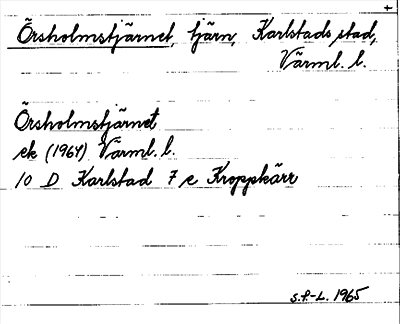 +
Örsholmstjärnet, tjärn, Karlstads stad,
Värml. l.
Örsholmstjärnet
ek (1964) Värml. l.
10 D Karlstad 7 e Kroppkärr
S.F.-L. 1965